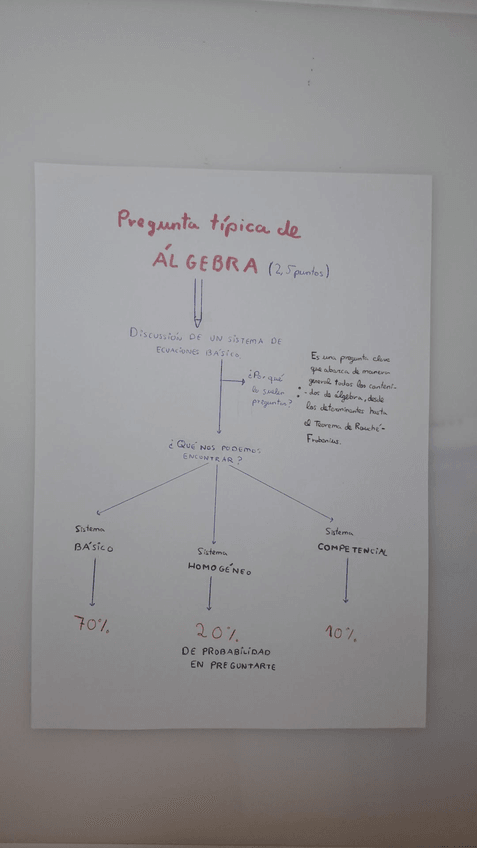 Pregunta típica de
ÁLGEBRA (2,5 puntos)
DISCUSSIÓN DE UN SISTEMA DE
ECUACIONES BÁSICO
¿Por qué
lo suelen
preguntar?
Es una pregunta clave
que abarca de manera
general todos los conteni-
-dos de álgebra, desde
los determinantes hasta
el Teorema de Rouché-
Frobenius.
¿QUÉ NOS PODEMOS
ENCONTRAR?
Sistema
BÁSICO
Sistema
HOMOGÉNEO
Sistema
COMPETENCIAL
70%
20%
10%
DE PROBABILIDAD
EN PREGUNTARTE